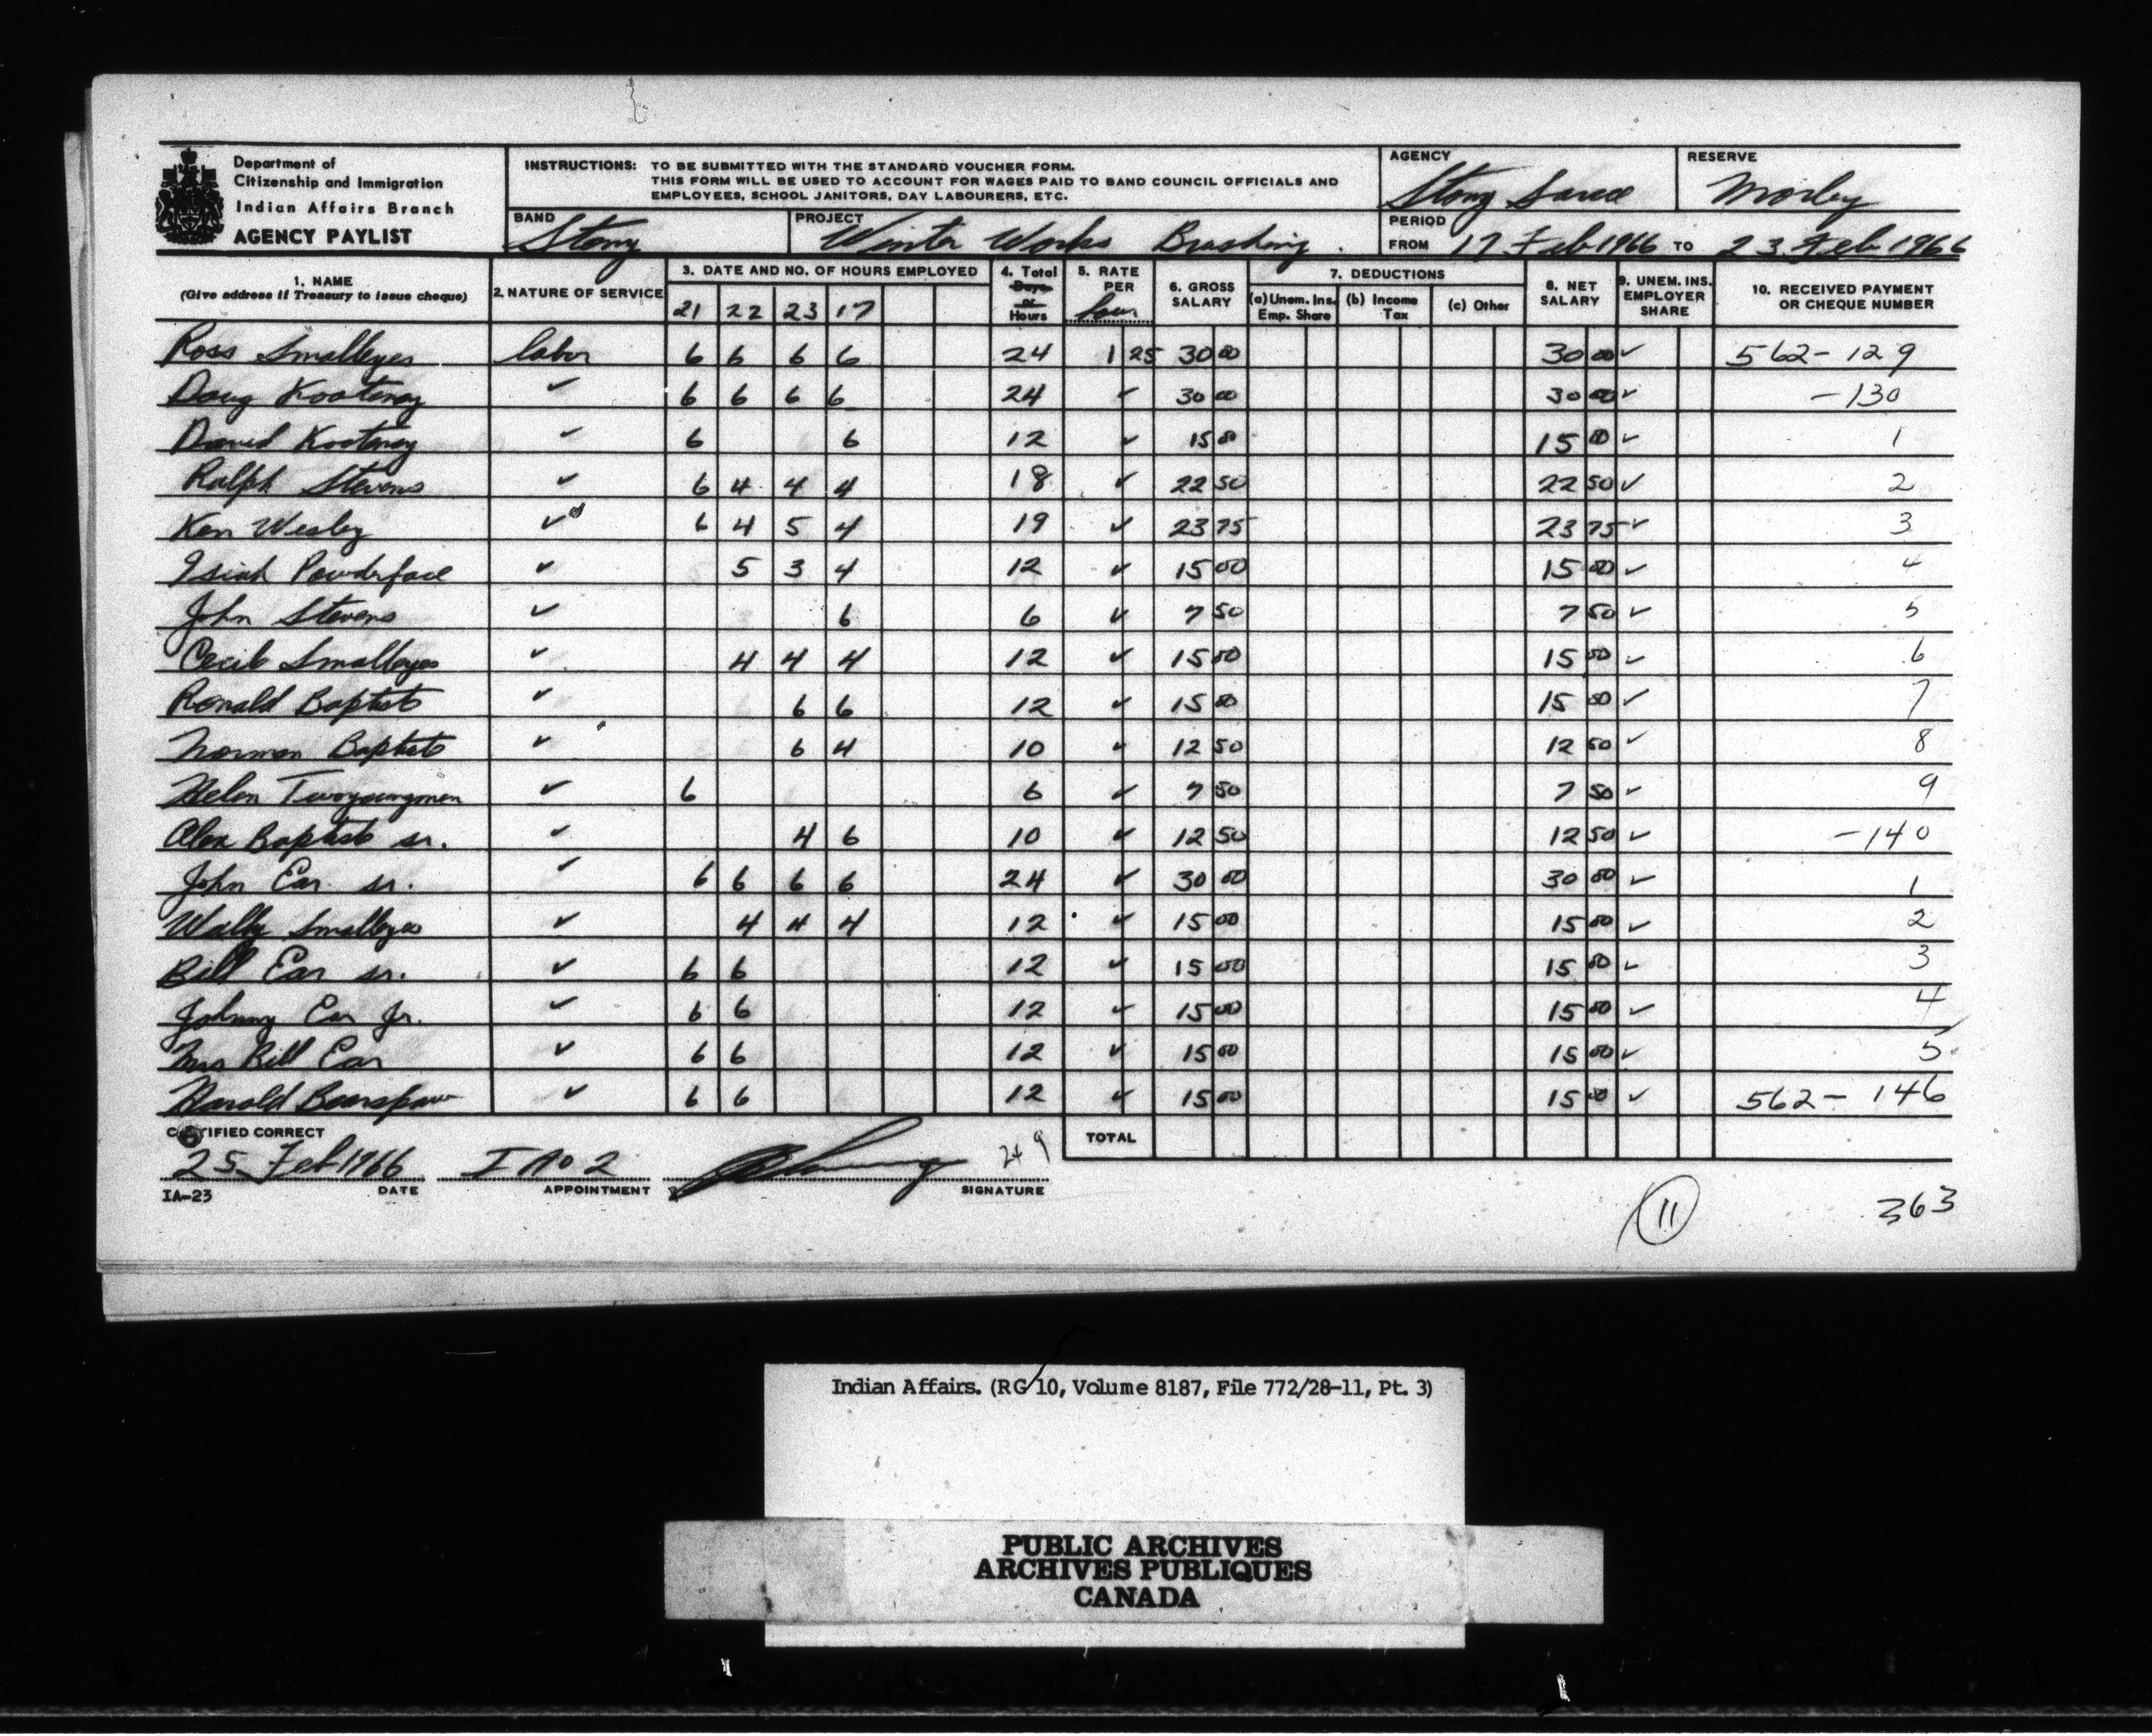 Department of
Citizenship and Immigration
Indian Affairs Branch
AGENCY PAYLIST
INSTRUCTIONS: TO BE SUBMITTED WITH THE STANDARD VOUCHER FORM.
THIS FORM WILL BE USED TO ACCOUNT FOR WAGES PAID TO BAND COUNCIL OFFICIALS AND
EMPLOYEES, SCHOOL JANITORS, DAY LABOURERS, ETC.
AGENCY Stony Sarcee
RESERVE Morley
BAND Stony
PROJECT Winter Works Brushing.
PERIOD FROM 17 Feb 1966 TO 23 Feb 1966
1. NAME (Give address if Treasury to issue cheque)
2. NATURE OF SERVICE
3. DATE AND NO. OF HOURS EMPLOYED
21 22 23 17
4. Total Days or Hours
5. RATE PER hour
6. GROSS SALARY
7. DEDUCTIONS
(a) Unem. Ins. Emp. Share
(b) Income Tax
(c) Other
8. NET SALARY
9. UNEM. INS. EMPLOYER SHARE
10. RECEIVED PAYMENT OR CHEQUE NUMBER
Ross Smalleyes labor 6 6 6 6 24 1 25 30 00 30 00 ✓ 562-129
Doug Kootenay ✓ 6 6 6 6 24 ✓ 30 00 30 00 ✓ -130
David Kootenay ✓ 6 6 12 ✓ 15 00 15 00 ✓ 1
Ralph Stevens ✓ 6 4 4 4 18 ✓ 22 50 22 50 ✓ 2
Ken Wesley ✓ 6 4 5 4 19 ✓ 23 75 23 75 ✓ 3
Isiah Powderface ✓ 5 3 4 12 ✓ 15 00 15 00 ✓ 4
John Stevens ✓ 6 6 ✓ 7 50 7 50 ✓ 5
Cecil Smalleyes ✓ 4 4 4 12 ✓ 15 00 15 00 ✓ 6
Ronald Baptist ✓ 6 6 12 ✓ 15 00 15 00 ✓ 7
Norman Baptiste ✓ 6 4 10 ✓ 12 50 12 50 ✓ 8
Helen Twoyoungmen ✓ 6 6 ✓ 7 50 7 50 ✓ 9
Alex Baptiste sr. ✓ 4 6 10 ✓ 12 50 12 50 ✓ -140
John Ear sr. ✓ 6 6 6 6 24 ✓ 30 00 30 00 ✓ 1
Wally Smalleyes ✓ 4 4 4 12 ✓ 15 00 15 00 ✓ 2
Bill Ear sr. ✓ 6 6 12 ✓ 15 00 15 00 ✓ 3
Johnny Ear Jr. ✓ 6 6 12 ✓ 15 00 15 00 ✓ 4
Mrs Bill Ear ✓ 6 6 12 ✓ 15 00 15 00 ✓ 5
Harold Bearspaw ✓ 6 6 12 ✓ 15 00 15 00 ✓ 562-146
CERTIFIED CORRECT
TOTAL
25 Feb 1966 IAO 2 249
DATE APPOINTMENT SIGNATURE
IA-23
11
363
Indian Affairs. (RG 10, Volume 8187, File 772/28-11, Pt. 3)
PUBLIC ARCHIVES
ARCHIVES PUBLIQUES
CANADA